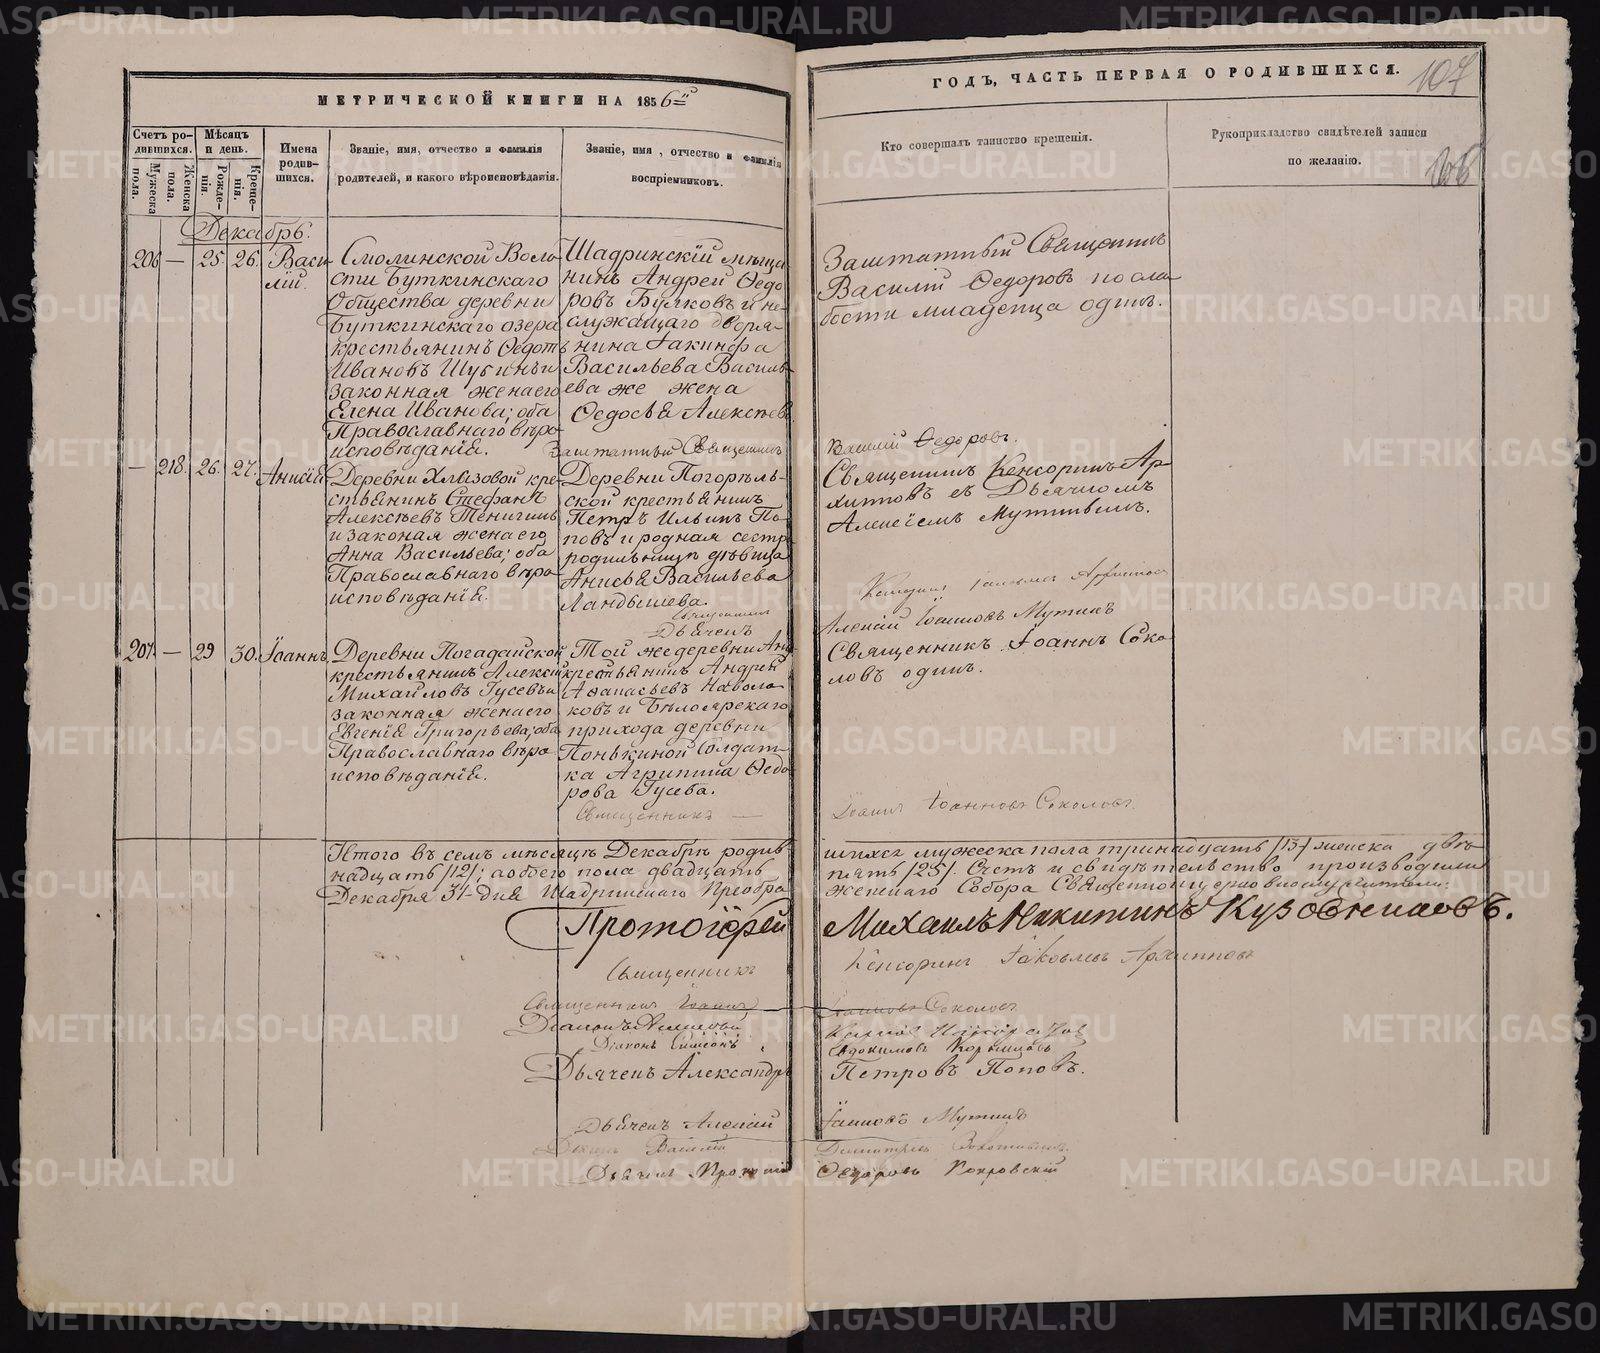 МЕТРИЧЕСКОЙ КНИГИ НА 1856й
ГОДЪ, ЧАСТЬ ПЕРВАЯ О РОДИВШИХСЯ.
107
Счетъ ро-
дившихся.
Мужеска
пола.
Женска
пола.
Мѣсяцъ
и день.
Рожде-
нія.
Креще-
нія.
Имена
родив-
шихся.
Званіе, имя, отчество и фамилія
родителей, и какого вѣроисповѣданія.
Званіе, имя, отчество и фамилія
воспріемниковъ.
Кто совершалъ таинство крещенія.
Рукоприкладство свидѣтелей записи
по желанію.
Декабрь.
206 — 25. 26. Васи
лій.
Смолинской Воло
сти Буткинскаго
Общества деревни
Буткинскаго озера
крестьянинъ Ѳедотъ
Ивановъ Шубинъ и
законная жена его
Елена Иванова; оба
Православнаго вѣро
исповѣданія.
Шадринскій мѣща
нинъ Андрей Ѳедо
ровъ Булковъ и не
служащаго дворя-
нина Іакинфа
Васильева Василь
ева же жена
Ѳедосья Алексѣев
Заштатный Священникъ
Заштатный Священникъ
Василій Ѳедоровъ по сла
бости младенца одинъ.
Василій Ѳедоровъ.
— 218. 26. 27. Анисія
Деревни Хлызовой кре
стьянинъ Стефанъ
Алексѣевъ Тенигинъ
и законая жена его
Анна Васильева; оба
Православнаго вѣро
исповѣданія.
Деревни Погорѣль-
ской крестьянинъ
Петръ Ильинъ По-
повъ и родная сестра
родильницы дѣвица
Анисья Васильева
Ландышева.
Священникъ
Дьячекъ
Священникъ Кенсоринъ Ар-
хиповъ съ Дьячкомъ
Алексѣемъ Мутинымъ.
Алексій Іоанновъ Мутинъ
207. — 29 30. Іоаннъ
Деревни Погадайской
крестьянинъ Алексѣй
Михайловъ Гусевъ и
законная жена его
Евгенія Григорьева; оба
Православнаго вѣро
исповѣданія.
Той же деревни
крестьянинъ Андрей
Аѳанасьевъ Наволо
ковъ и Бѣлоярскаго
прихода деревни
Понькиной Солдат-
ка Агрипина Ѳедо
рова Гусева.
Священникъ —
Священникъ Іоаннъ Соко
ловъ одинъ.
Іоаннъ Іоанновъ Соколовъ.
Итого въ семъ мѣсяцѣ Декабрѣ родив-
шихся мужеска пола тринадцать /13/ женска двѣ
надцать /12/; а обоего пола двадцать
пять /25/. Счетъ и свидѣтельство производили
Декабря 31 дня Шадринскаго Преобра
женскаго Собора Священноцерковнослужители:
Протоіерей Михаилъ Никитинъ Кузовниковъ.
Священникъ Кенсоринъ Іаковлевъ Архиповъ
Священникъ Іоаннъ Іоанновъ Соколовъ
Діаконъ Симеонъ Евдокимовъ
Дьячекъ Александръ Петровъ Поповъ.
Дьячекъ Алексій Іоанновъ Мутинъ
Василій
Ѳедоровъ Покровскій
METRIKI.GASO-URAL.RU